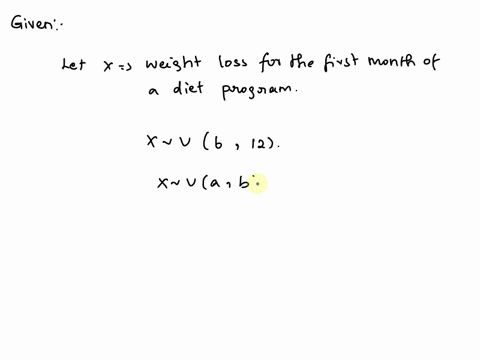 Given:-
Let x => weight loss for the first month of
a diet program.
X ~ U (6, 12).
X ~ U (a, b